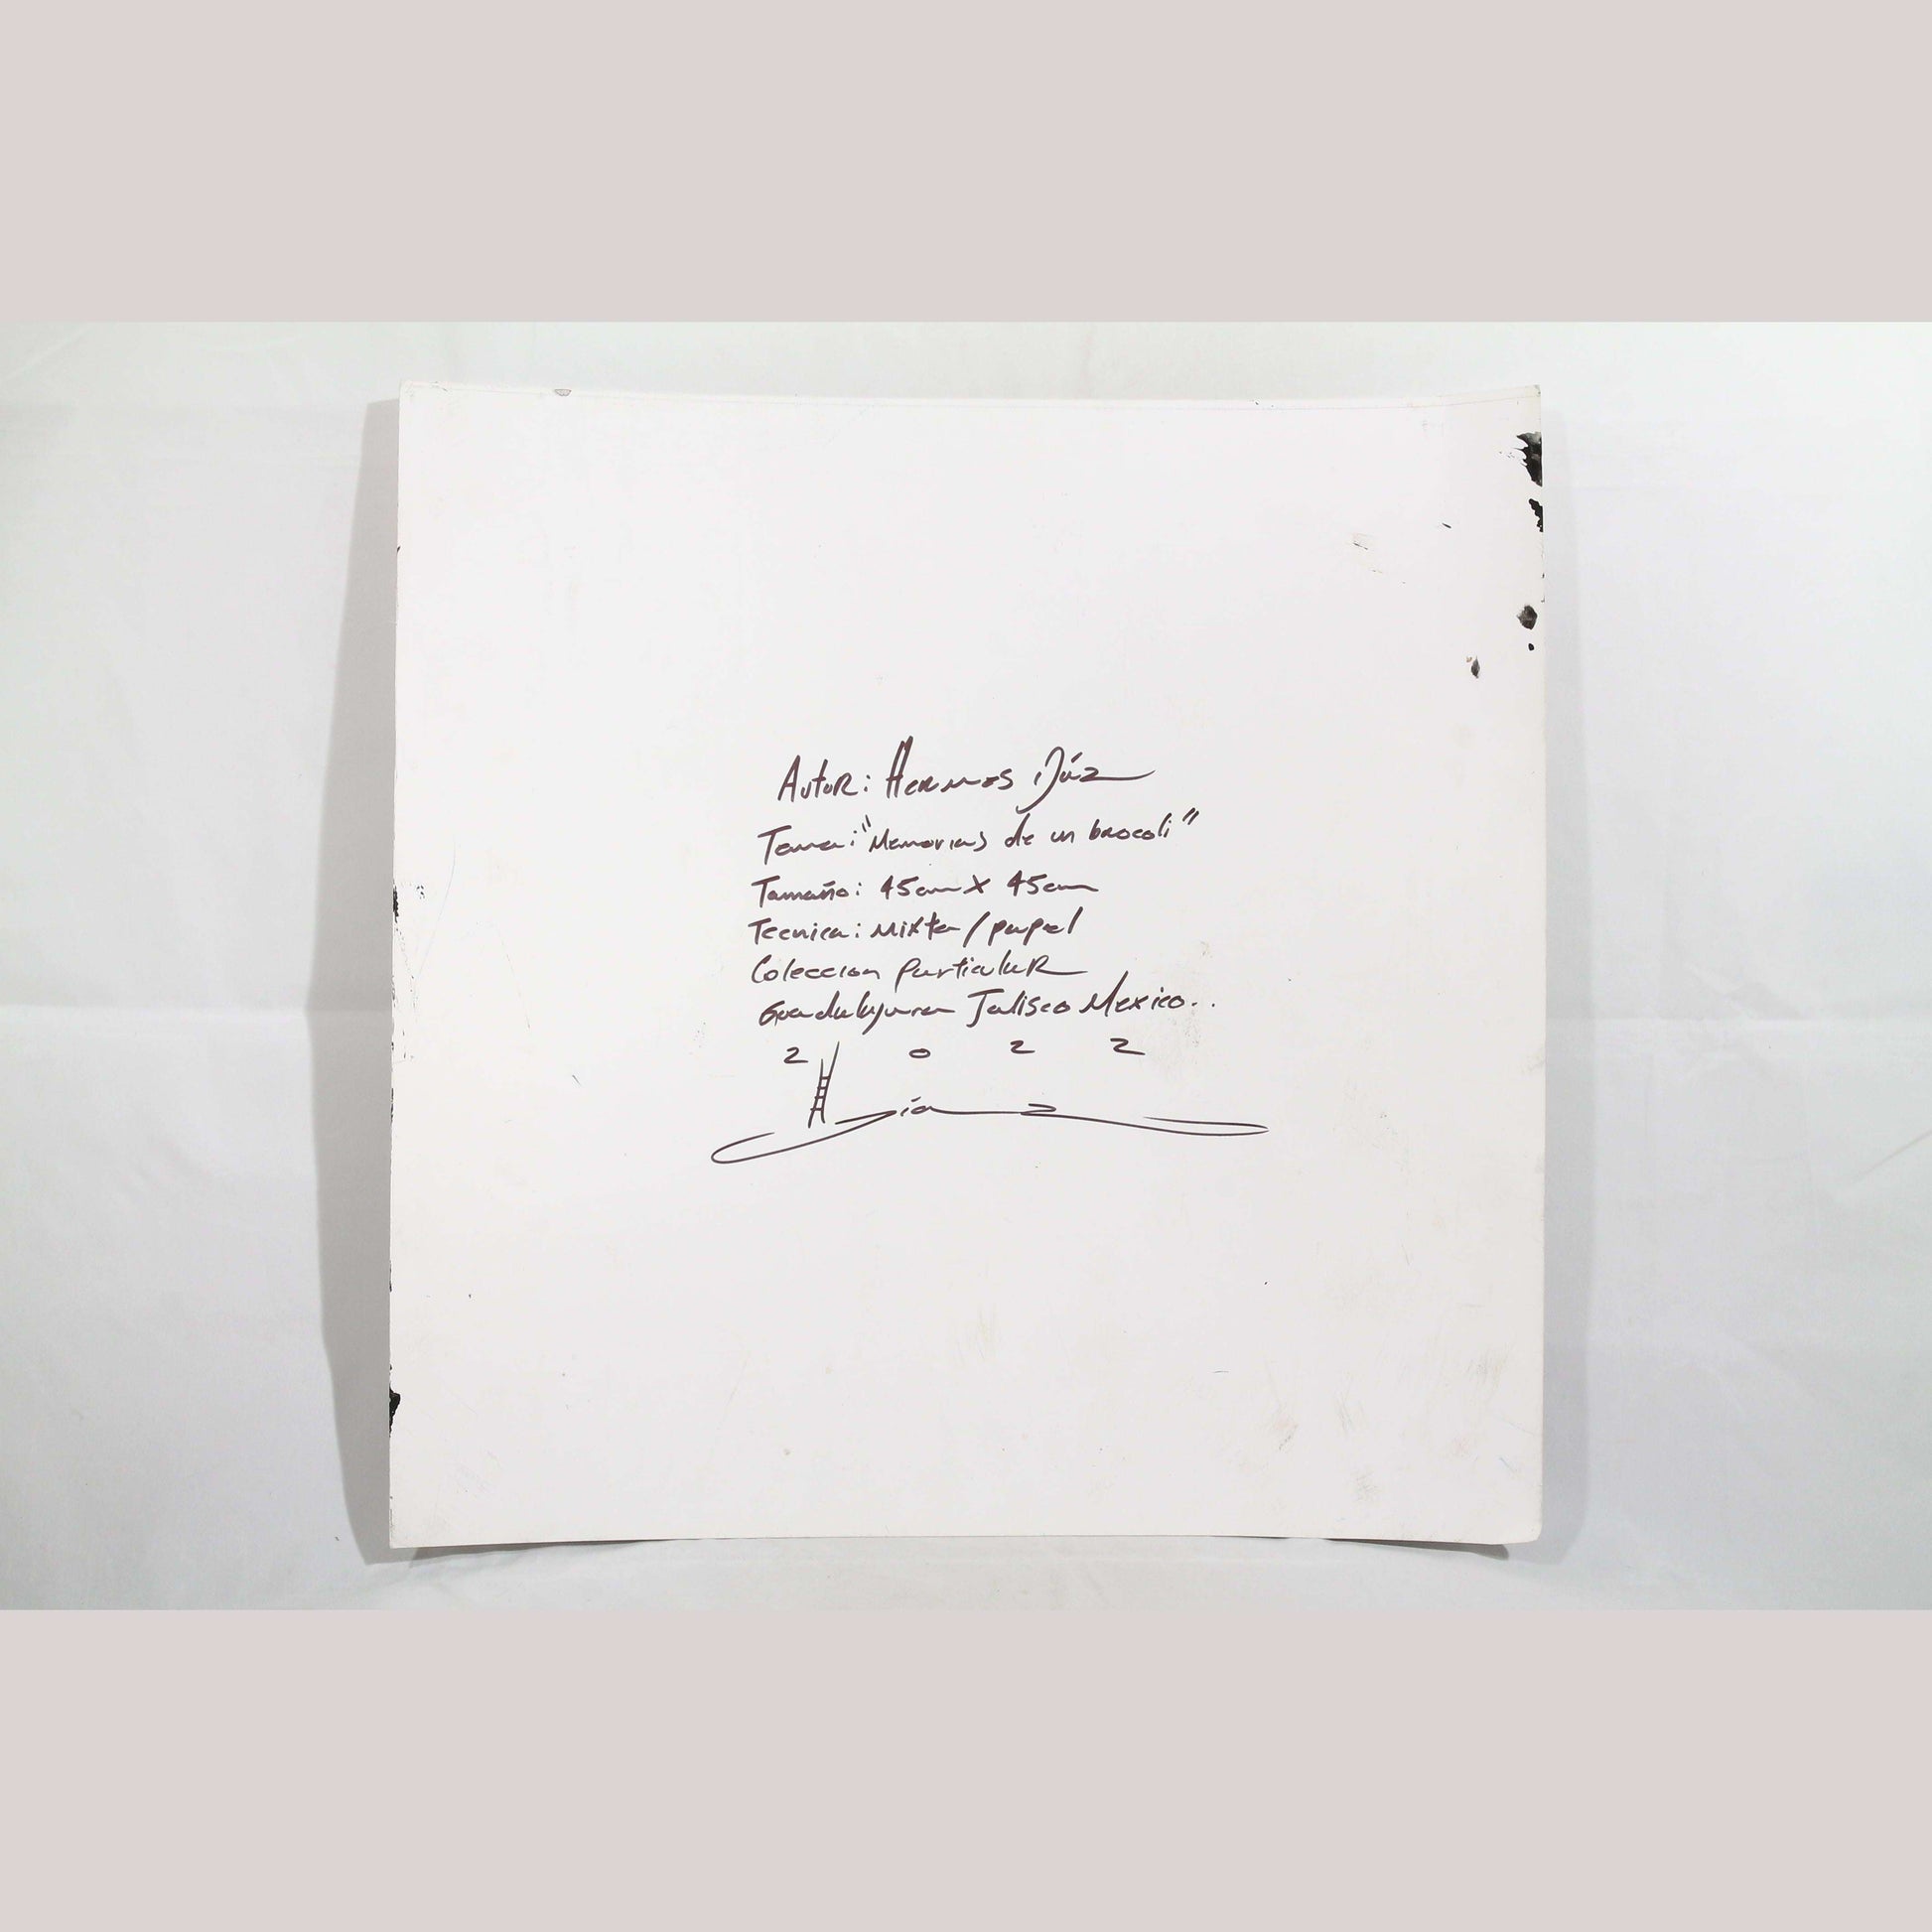 Autor: Hermes Díaz
Tema: "Memorias de un brocoli"
Tamaño: 45cm X 45cm
Tecnica: Mixta / papel
Coleccion particular
Guadalajara Jalisco Mexico..
2 0 2 2
H Díaz